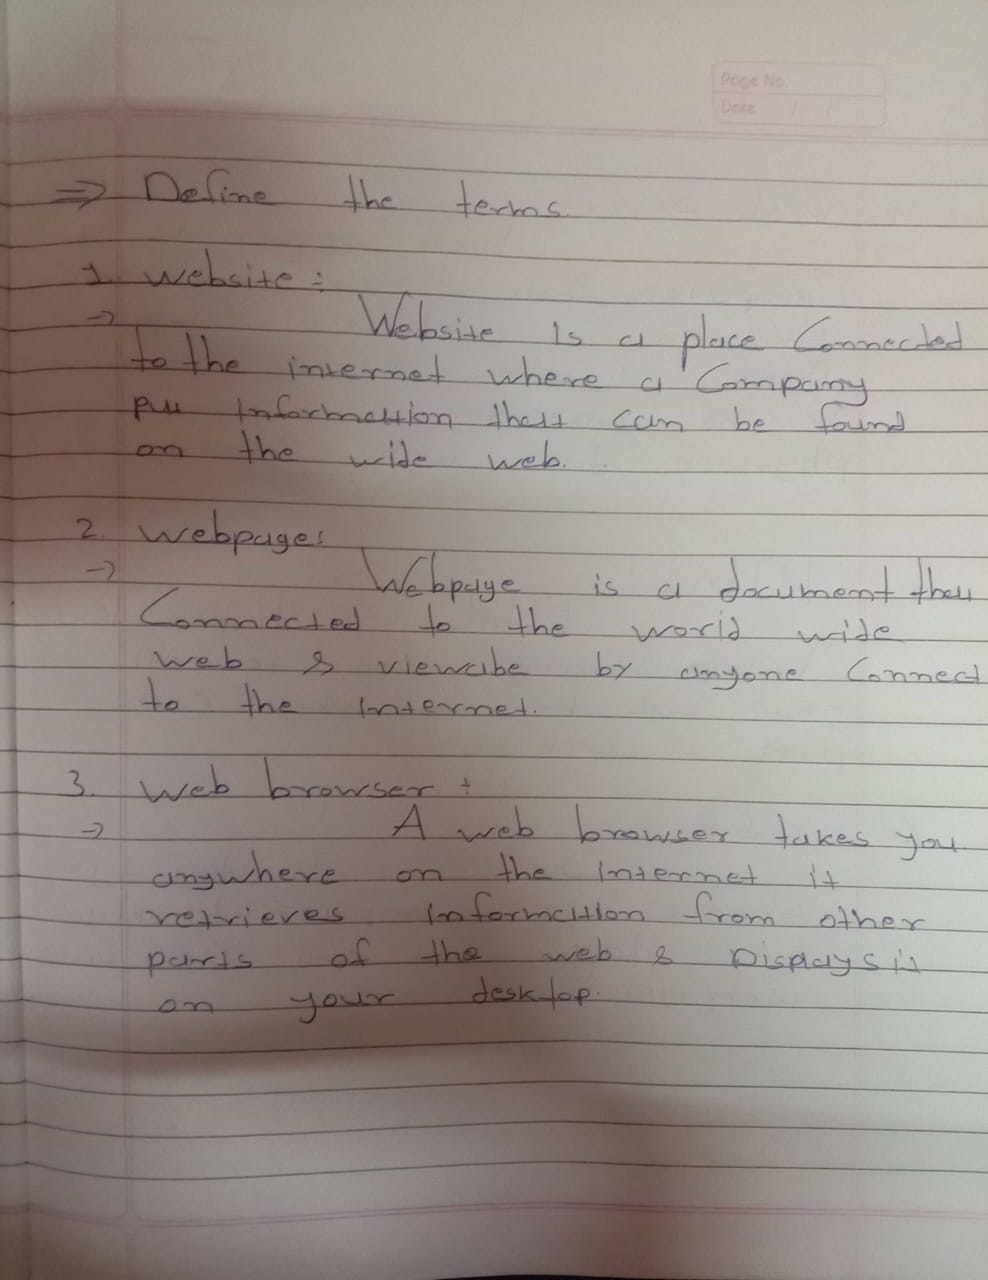 Page No.
Date / /
⇒ Define the terms.
1. website :
→ Website is a place Connected
to the internet where a Company
put information that can be found
on the wide web.
2. Webpage:
→ Webpage is a document that
Connected to the world wide
web & viewabe by anyone Connect
to the internet.
3. Web browser :
→ A web browser takes you
anywhere on the internet it
retrieves information from other
parts of the web & Displays it
on your desktop.